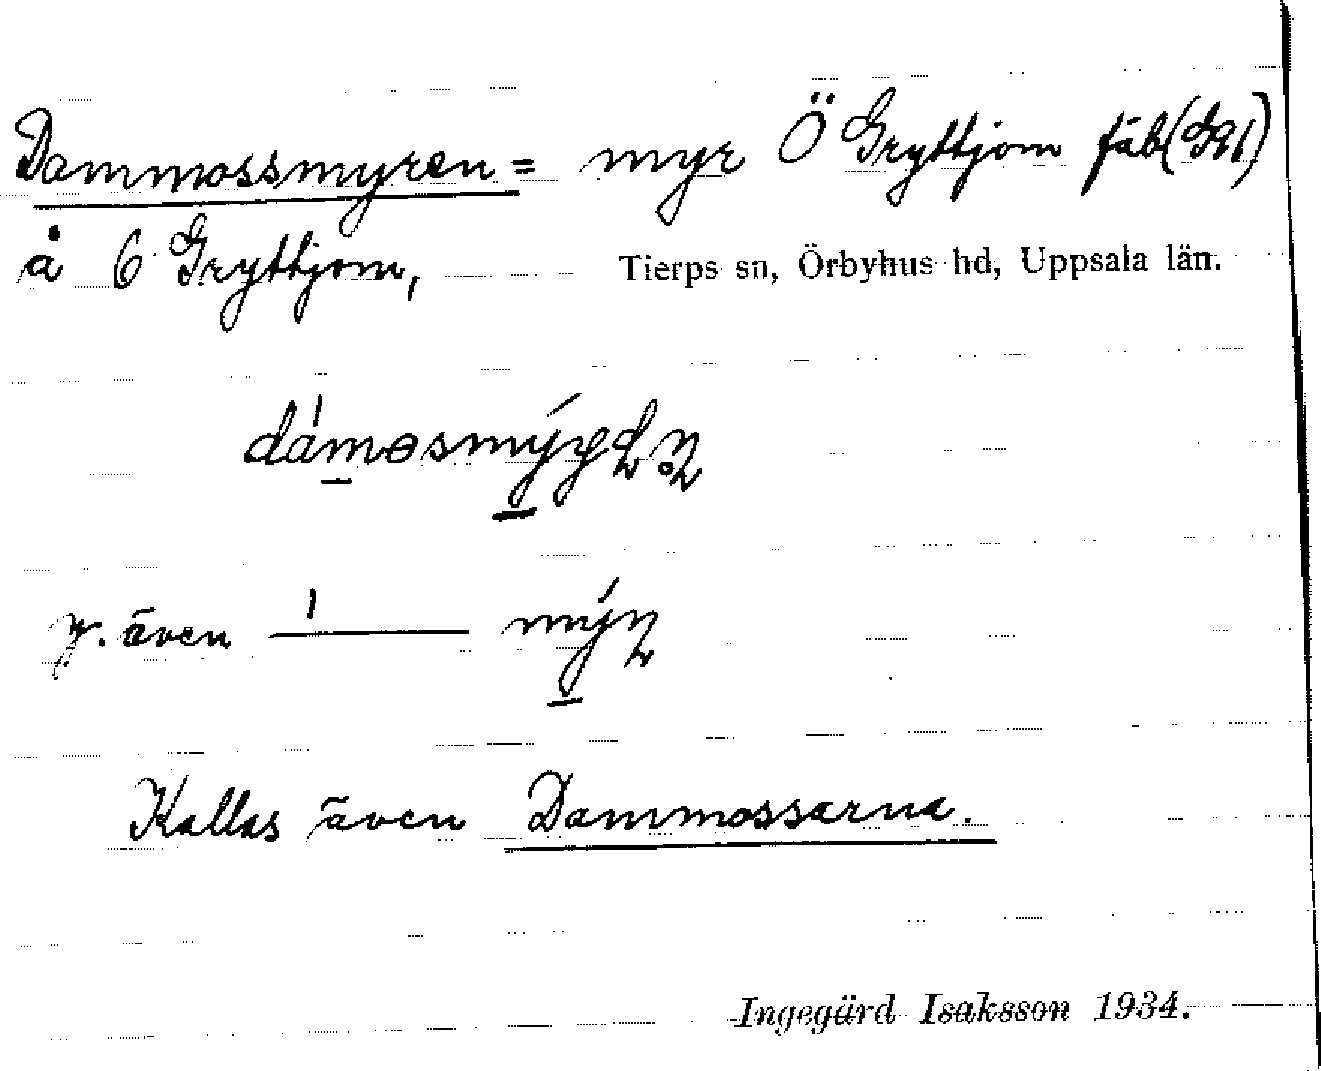 Dammossmyren = myr Ö Gryttjom fäb
å 6 Gryttjom, Tierps sn, Örbyhus hd, Uppsala län.
y. även ——— 
Kallas även Dammossarna.
Ingegärd Isaksson 1934.